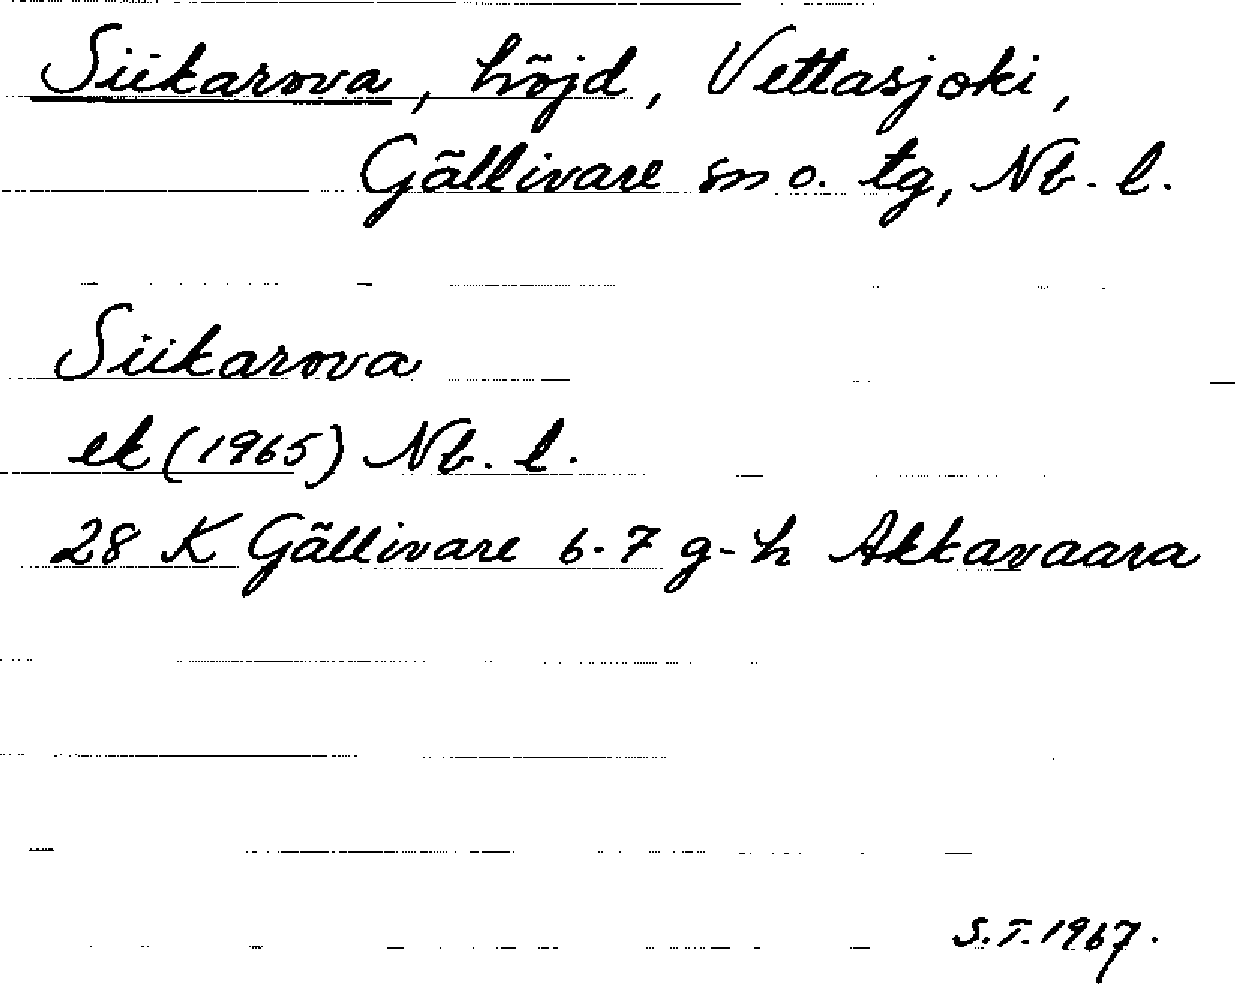 Siikarova, höjd, Vettasjoki,
Gällivare sn o. tg, Nb. l.
Siikarova
ek (1965) Nb. l.
28 K Gällivare 6-7 g-h Akkavaara
S.T. 1967.